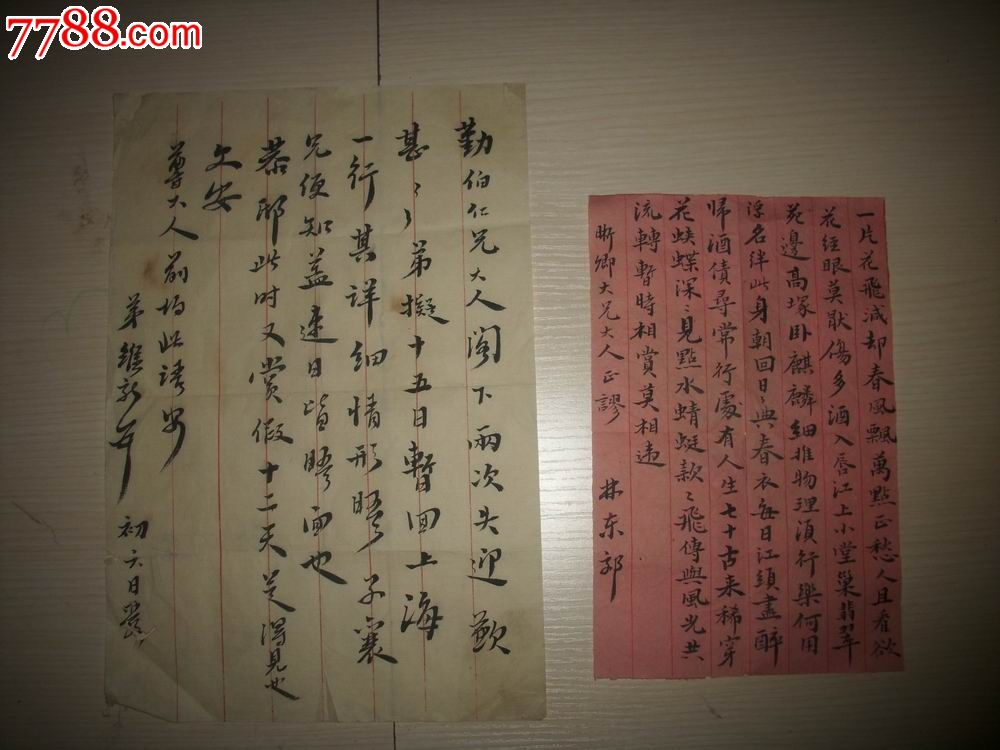 7788.com
勤伯仁兄大人閣下兩次失迎歉
甚〻弟擬十五日暫回上海
一行其詳細情形晤子襄
兄便知蓋連日皆晤面也
恭 此时又賞假十二天 得見也
文安
尊大人前均此請安
弟 初六日
一片花飛減却春風飄萬點正愁人且看欲
花經眼莫猒傷多酒入唇江上小堂巢翡翠
苑邊高塚卧麒麟細推物理須行樂何用
浮名絆此身朝回日〻典春衣每日江頭盡醉
歸酒債尋常行處有人生七十古来稀穿
花蛺蝶深〻見點水蜻蜓款〻飛傳與風光共
流轉暫時相賞莫相违
晰卿大兄大人正謬
林东郭